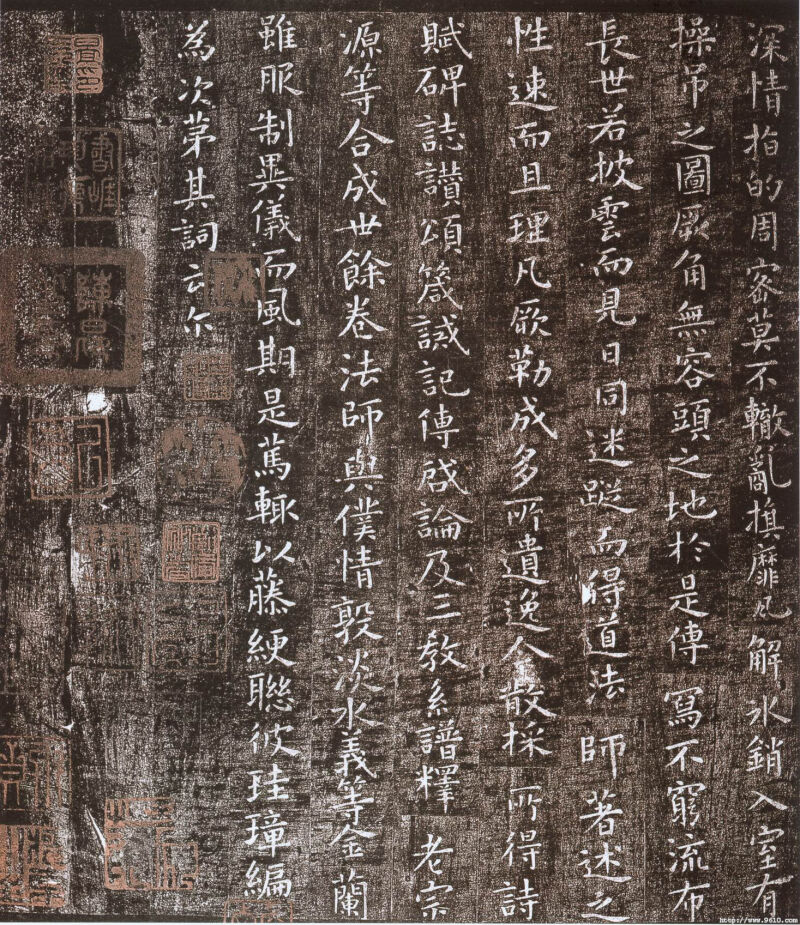 深情指的周密莫不轍亂旗靡瓦解冰銷入室有
操吊之圖厥角無容頭之地於是傳寫不窮流布
長世若披雲而見日同迷蹤而得道法師著述之
性速而且理凡厥勒成多所遺逸今散採所得詩
賦碑誌讚頌箴誡記傳啟論及三教系譜釋老宗
源等合成卅餘卷法師與僕情敦淡水義等金蘭
雖服制異儀而風期是篤輒以藤緶聯彼珪璋編
為次第其詞云尔
http://www.9610.com